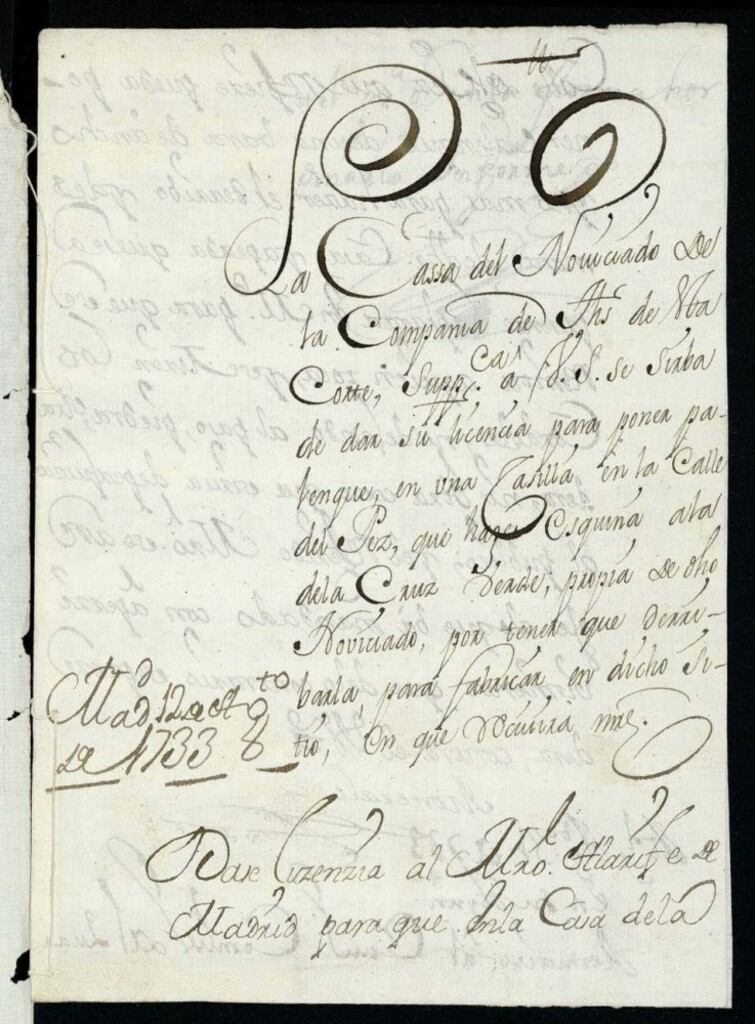 La Cassa del Noviciado De
la Compania de Jhs de esta
Corte, Suppca. a V. S. se sirba
de dar su licencia para poner pa-
lenque, en vna Casilla en la Calle
del Pez, que haze Esquina a la
de la Cruz Verde, propia de dho
Noviciado, por tener que derri-
barla, para fabricar en dicho si-
tio, En que rrecivira mrd.
Madd. 12 de Agto
de 1733
Dase Lizenzia al Mro. Alarife de
Madrid para que en la Casa de la